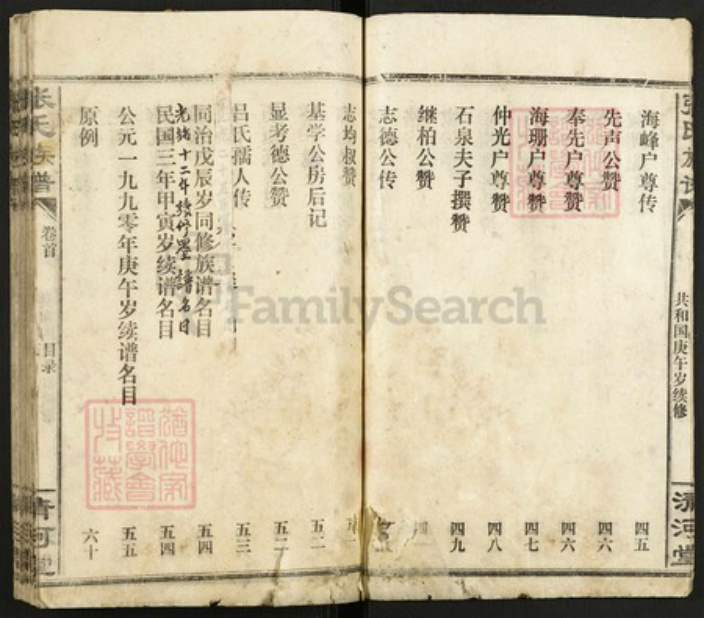 张氏族谱
共和国庚午岁续修
清河堂
海峰户尊传 四五
先声公赞 四六
奉先户尊赞 四六
海珊户尊赞 四七
仲光户尊赞 四八
石泉夫子撰赞 四九
继柏公赞
志德公传
志均叔赞
基学公房后记 五一
显考德公赞 五二
吕氏孺人传 五三
同治戊辰岁同修族谱名目 五四
光绪十二年续修墨谱名目
民国三年甲寅岁续谱名目 五四
公元一九九零年庚午岁续谱名目 五五
原例 六十
张氏族谱
卷首
目录
清河堂
FamilySearch